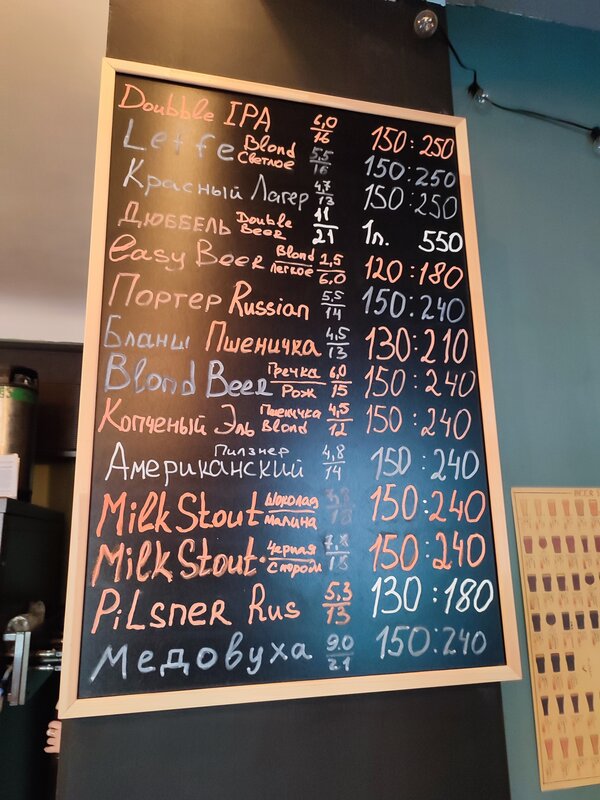 Doubble IPA 6,0/16 150:250
Leffe Blond Светлое 5,5/16 150:250
Красный Лагер 4,7/13 150:250
Дюббель Double Beer 11/21 1л. 550
easy Beer Blond Легкое 2,5/6,0 120:180
Портер Russian 5,5/14 150:240
Бланш Пшеничка 4,5/13 130:210
Blond Beer Гречка Рож 6,0/15 150:240
Копченый Эль Пшеничка Blond 4,5/12 150:240
Американский Пилзнер 4,8/14 150:240
Milk Stout Шоколад малина 150:240
Milk Stout Черная Смороди 150:240
PiLsner Rus 5.3/13 130:180
Медовуха 9.0/21 150:240